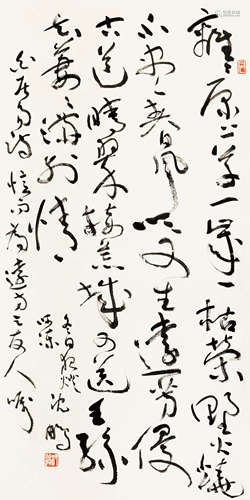 離〻原上草一歲一枯榮野火燒
不盡春風吹又生遠芳侵
古道晴翠接荒城又送王孫
去萋〻滿別情
白居易詩憶而為遠方之友人囑
冬日夜燈沈鵬